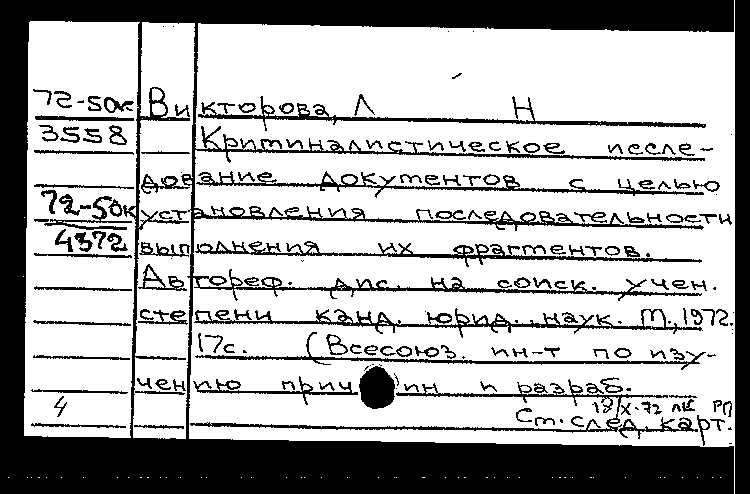 72-50к Викторова, Л Н
3558 Криминалистическое иссле-
дование документов с целью
72-50к установления последовательности
4372 выполнения их фрагментов.
Автореф. дис. на соиск. учен.
степени канд. юрид. наук. М., 1972.
17с. (Всесоюз. ин-т по изу-
чению причин и разраб.
4 18/X-72 РП
См. след. карт.